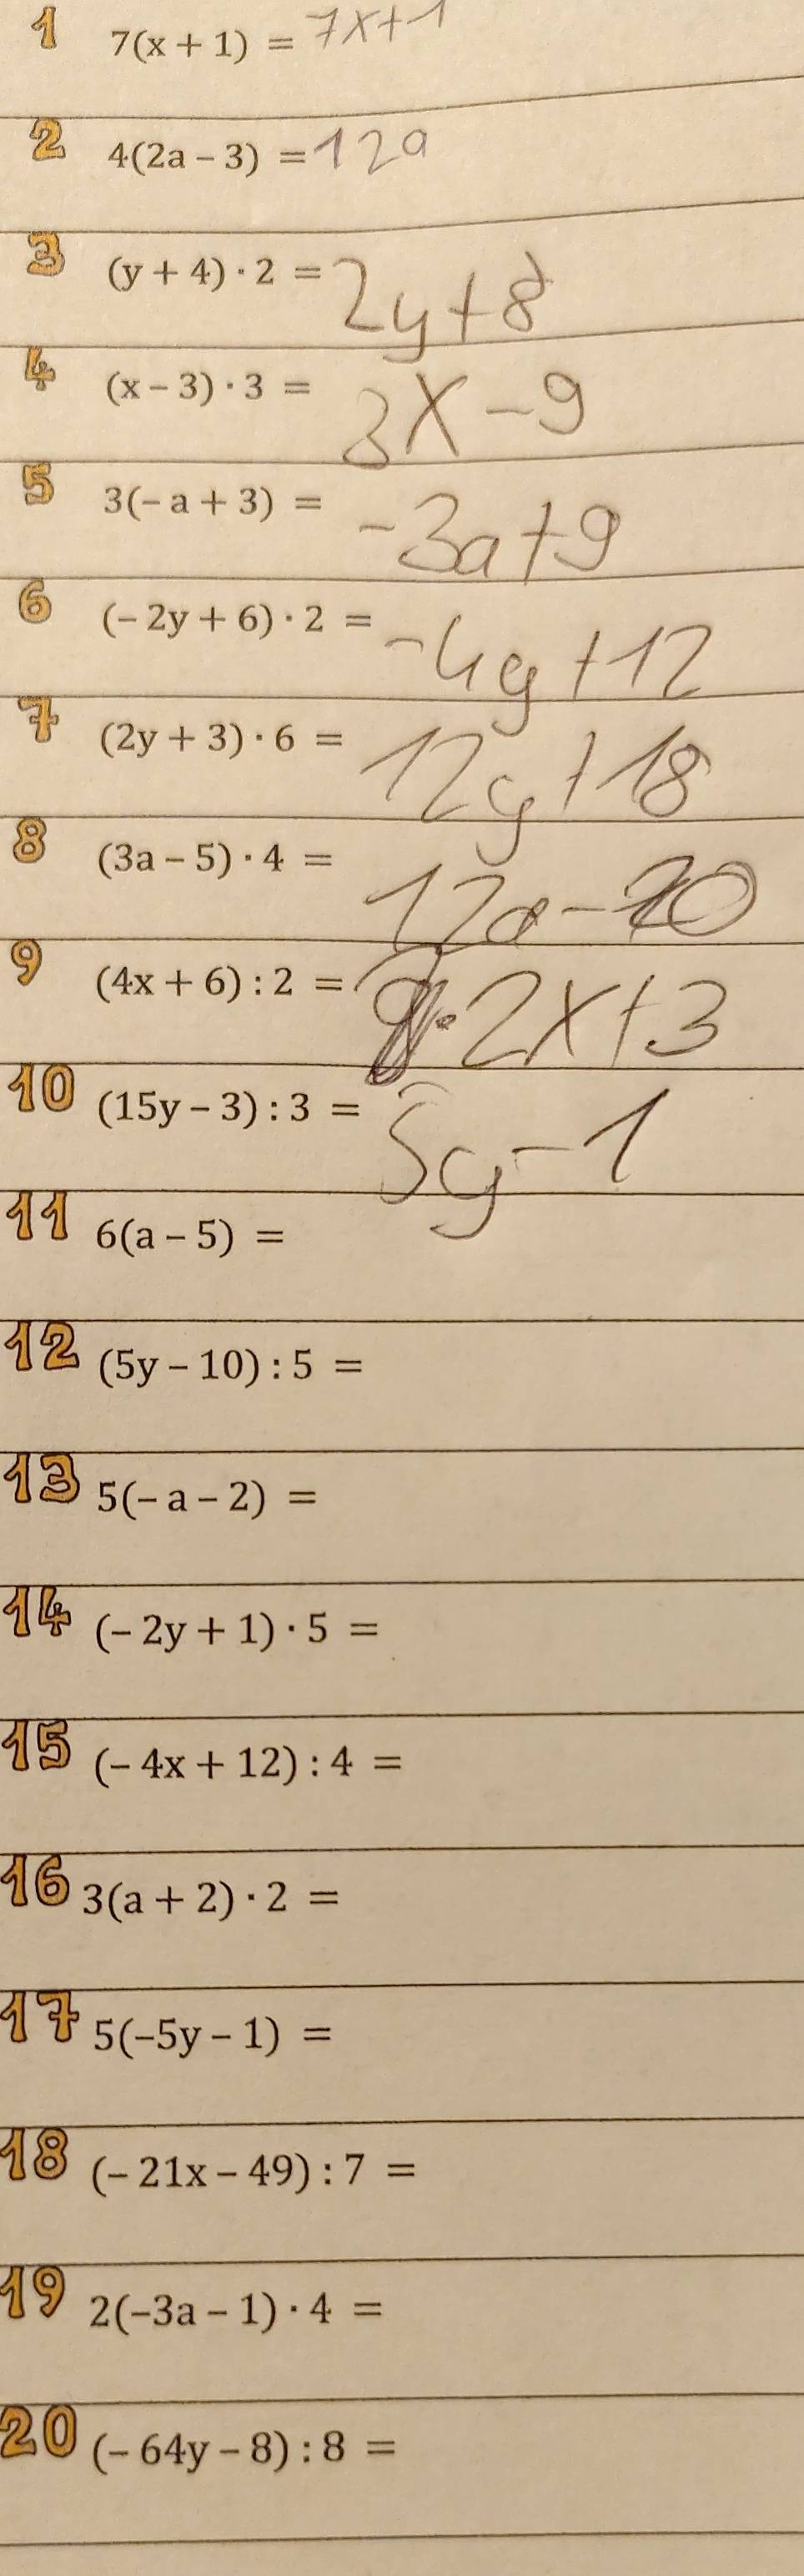 1 7(x + 1) = 7x+1
2 4(2a – 3) = 12a
3 (y + 4) · 2 = 2y+8
4 (x – 3) · 3 = 3x-9
5 3(– a + 3) = -3a+9
6 (– 2y + 6) · 2 = -4y+12
7 (2y + 3) · 6 = 12y+18
8 (3a – 5) · 4 = 12a-20
9 (4x + 6) : 2 = 2x+3
10 (15y – 3) : 3 = 5y-1
11 6(a – 5) =
12 (5y – 10) : 5 =
13 5(– a – 2) =
14 (– 2y + 1) · 5 =
15 (– 4x + 12) : 4 =
16 3(a + 2) · 2 =
17 5(–5y – 1) =
18 (– 21x – 49) : 7 =
19 2(–3a – 1) · 4 =
20 (– 64y – 8) : 8 =